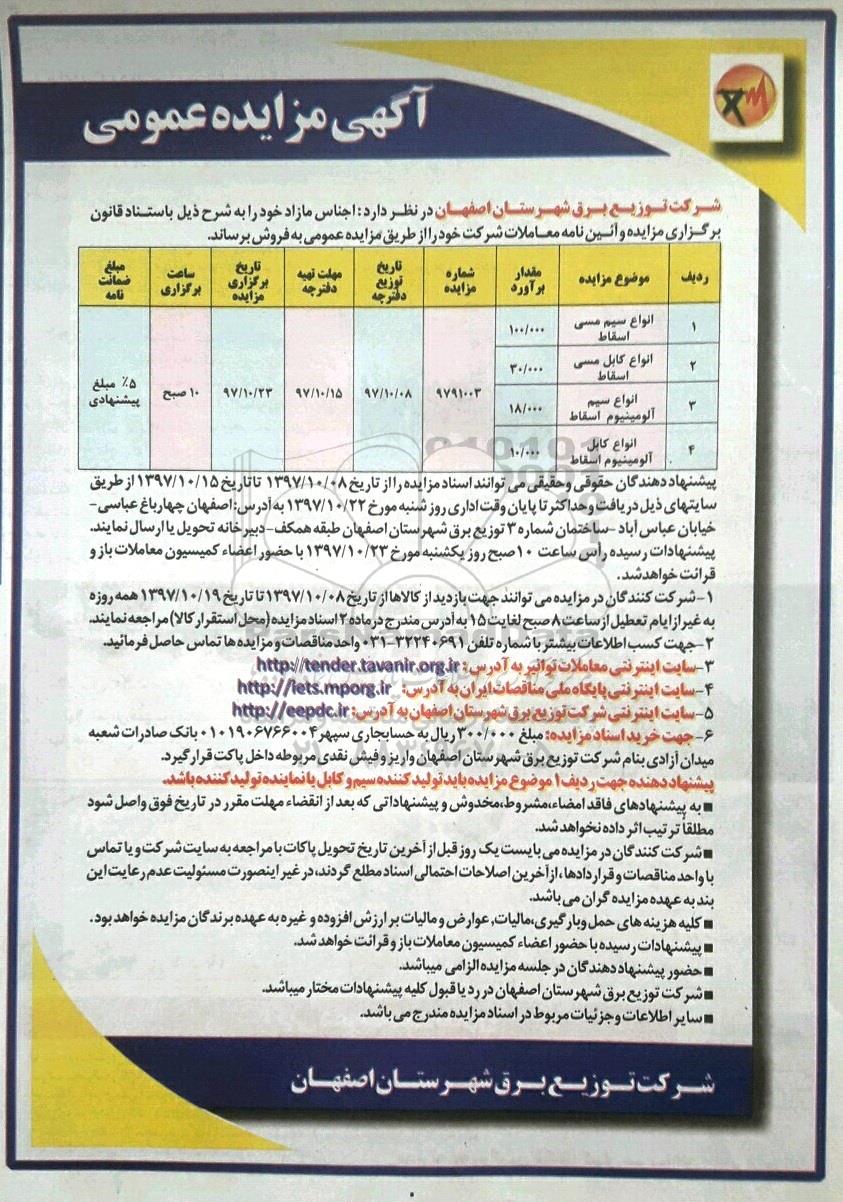 آگهی مزایده عمومی
شرکت توزیع برق شهرستان اصفهان در نظر دارد: اجناس مازاد خود را به شرح ذیل باستناد قانون
برگزاری مزایده و آئین نامه معاملات شرکت خود را از طریق مزایده عمومی به فروش برساند.
ردیف موضوع مزایده مقدار برآورد شماره مزایده تاریخ توزیع دفترچه مهلت تهیه دفترچه تاریخ برگزاری مزایده ساعت برگزاری مبلغ ضمانت نامه
۱ انواع سیم مسی اسقاط ۱۰۰/۰۰۰
۲ انواع کابل مسی اسقاط ۳۰/۰۰۰
۳ انواع سیم آلومینیوم اسقاط ۱۸/۰۰۰
۴ انواع کابل آلومینیوم اسقاط ۱۰/۰۰۰
۹۷۹۱۰۰۳ ۹۷/۱۰/۰۸ ۹۷/۱۰/۱۵ ۹۷/۱۰/۲۳ ۱۰ صبح ۵٪ مبلغ پیشنهادی
پیشنهاد دهندگان حقوقی وحقیقی می توانند اسناد مزایده را از تاریخ ۱۳۹۷/۱۰/۰۸ تا تاریخ ۱۳۹۷/۱۰/۱۵ از طریق
سایتهای ذیل دریافت وحداکثر تا پایان وقت اداری روز شنبه مورخ ۱۳۹۷/۱۰/۲۲ به آدرس: اصفهان چهارباغ عباسی-
خیابان عباس آباد -ساختمان شماره ۳ توزیع برق شهرستان اصفهان طبقه همکف-دبیرخانه تحویل یا ارسال نمایند.
پیشنهادات رسیده رأس ساعت ۱۰صبح روز یکشنبه مورخ ۱۳۹۷/۱۰/۲۳ با حضور اعضاء کمیسیون معاملات باز و
قرائت خواهد شد.
۱-شرکت کنندگان در مزایده می توانند جهت بازدید از کالاها از تاریخ ۱۳۹۷/۱۰/۰۸ تا تاریخ ۱۳۹۷/۱۰/۱۹ همه روزه
به غیر از ایام تعطیل از ساعت ۸ صبح لغایت ۱۵ به آدرس مندرج در ماده ۲ اسناد مزایده (محل استقرار کالا) مراجعه نمایند.
۲-جهت کسب اطلاعات بیشتر با شماره تلفن ۳۲۲۴۰۶۹۱-۰۳۱ واحد مناقصات و مزایده ها تماس حاصل فرمائید.
۳-سایت اینترنتی معاملات توانیر به آدرس : http://tender.tavanir.org.ir
۴-سایت اینترنتی پایگاه ملی مناقصات ایران به آدرس: http://iets.mporg.ir
۵-سایت اینترنتی شرکت توزیع برق شهرستان اصفهان به آدرس: http://eepdc.ir
۶-جهت خرید اسناد مزایده: مبلغ ۳۰۰/۰۰۰ ریال به حسابجاری سپهر ۰۱۰۱۹۰۶۷۶۶۰۰۴ بانک صادرات شعبه
میدان آزادی بنام شرکت توزیع برق شهرستان اصفهان واریز و فیش نقدی مربوطه داخل پاکت قرار گیرد.
پیشنهاد دهنده جهت ردیف ۱ موضوع مزایده باید تولید کننده سیم و کابل یا نماینده تولید کننده باشد.
■ به پیشنهادهای فاقد امضاء،مشروط،مخدوش و پیشنهاداتی که بعد از انقضاء مهلت مقرر در تاریخ فوق واصل شود
مطلقاً ترتیب اثر داده نخواهد شد.
■ شرکت کنندگان در مزایده می بایست یک روز قبل از آخرین تاریخ تحویل پاکات با مراجعه به سایت شرکت و یا تماس
با واحد مناقصات و قراردادها ، از آخرین اصلاحات احتمالی اسناد مطلع گردند، در غیر اینصورت مسئولیت عدم رعایت این
بند به عهده مزایده گران می باشد.
■ کلیه هزینه های حمل وبارگیری،مالیات, عوارض و مالیات بر ارزش افزوده و غیره به عهده برندگان مزایده خواهد بود.
■ پیشنهادات رسیده با حضور اعضاء کمیسیون معاملات باز و قرائت خواهد شد.
■ حضور پیشنهاد دهندگان در جلسه مزایده الزامی میباشد.
■ شرکت توزیع برق شهرستان اصفهان در رد یا قبول کلیه پیشنهادات مختار میباشد.
■ سایر اطلاعات وجزئیات مربوط در اسناد مزایده مندرج می باشد.
شرکت توزیع برق شهرستان اصفهان